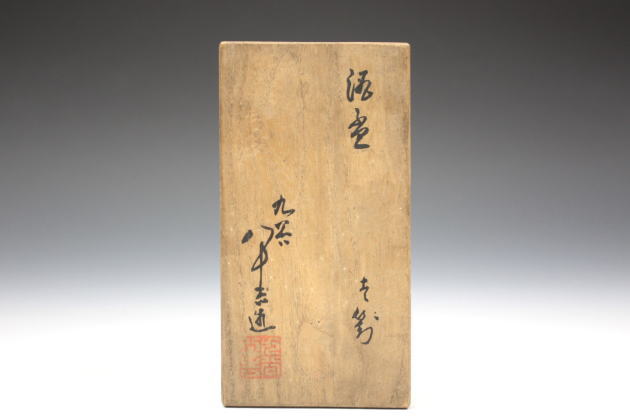 酒盃
壱對
九谷
八十吉造